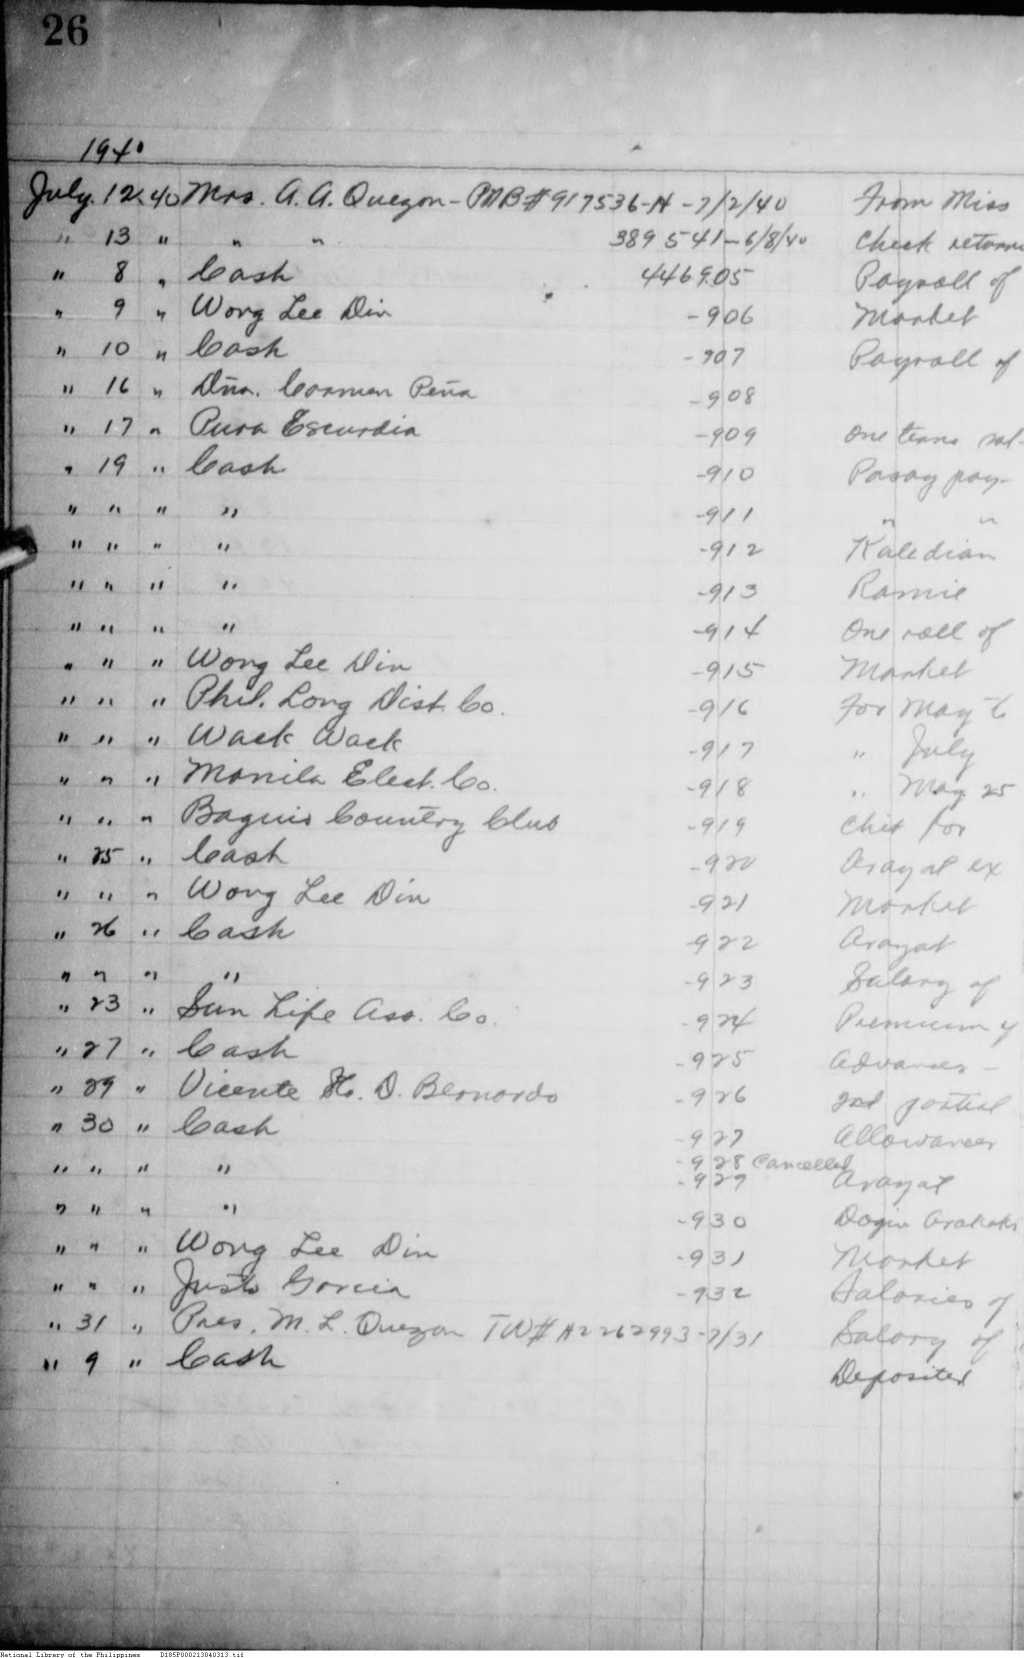 26
1940
July. 12. 40 Mrs. A. A. Quezon - PNB# 917536-H - 7/2/40 From Miss
" 13 " " " 389541 - 6/8/40 Check
" 8 " Cash 446905 Payroll of
" 9 " Wong Lee Din -906 Market
" 10 " Cash -907 Payroll of
" 16 " Dña. Carmen Peña -908
" 17 " Pura Escurdia -909 One
" 19 " Cash -910 Pasay pay-
" " " " -911 " "
" " " " -912 Kaledian
" " " " -913 Ramie
" " " " -914 One roll of
" " " Wong Lee Din -915 Market
" " " Phil. Long Dist. Co. -916 For May
" " " Wack Wack -917 " July
" " " Manila Elect. Co. -918 " May 25
" " " Baguio Country Club -919 Chit for
" 25 " Cash -920 Arayat ex
" " " Wong Lee Din -921 Market
" 26 " Cash -922 Arayat
" " " " -923 Salary of
" 23 " Sun Life Ass. Co. -924 Premium
" 27 " Cash -925 Advances -
" 29 " Vicente D. Bernardo -926 2nd partial
" 30 " Cash -927 Allowances
" " " " -928 Cancelled
-929 Arayat
" " " " -930
" " " Wong Lee Din -931 Market
" " " Justo Garcia -932 Salaries of
" 31 " Pres. M. L. Quezon TW# A2262993-7/31 Salary of
" 9 " Cash Deposited
National Library of the Philippines D185P000213040313.tif